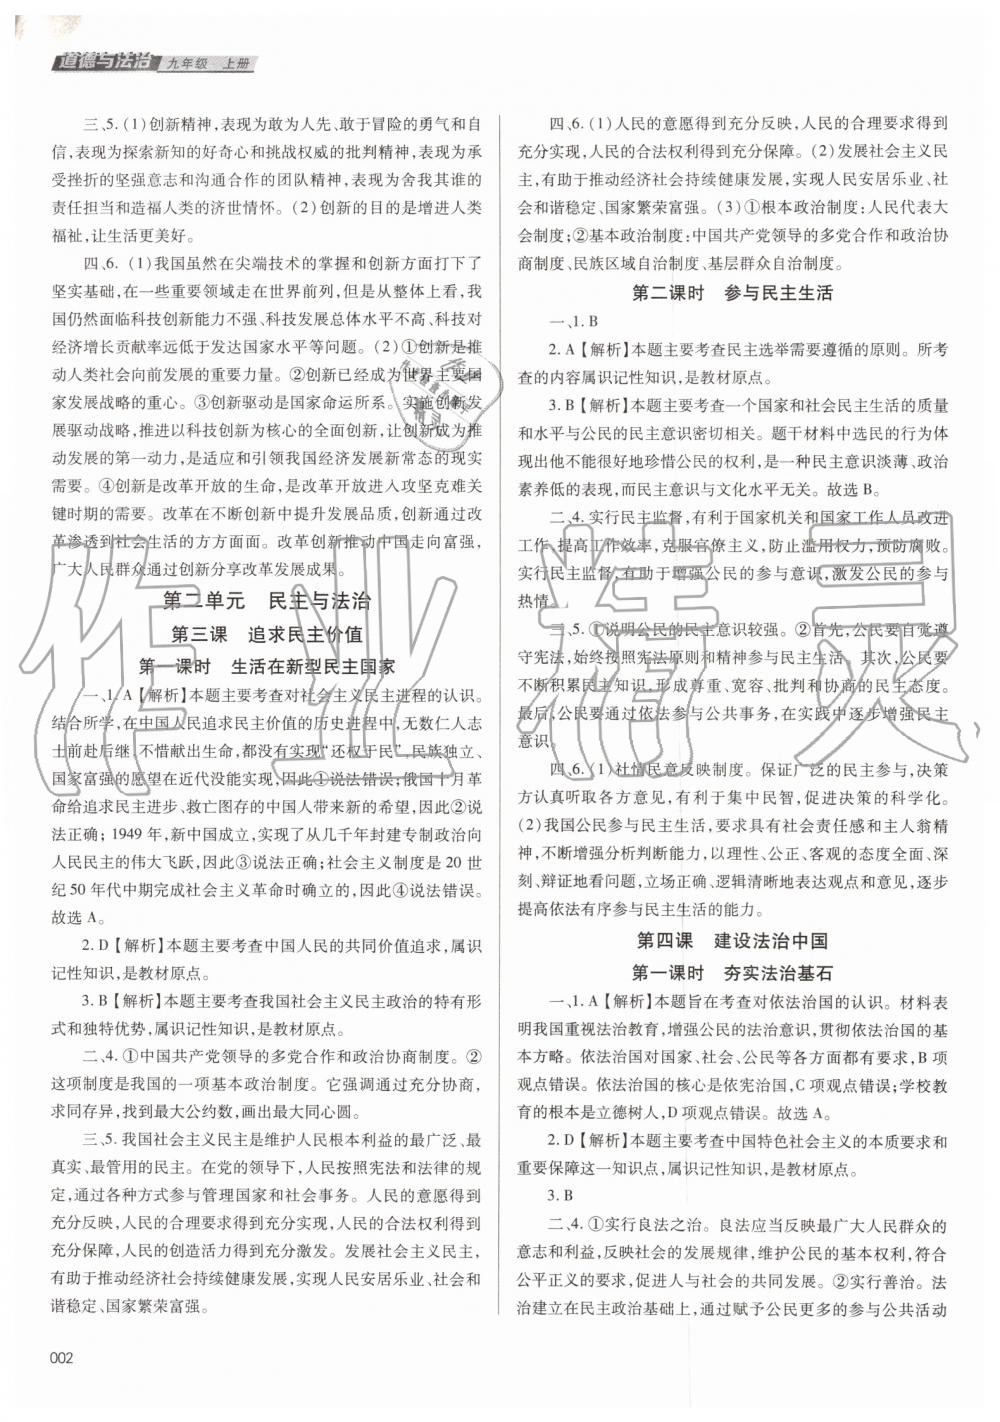 道德与法治 九年级 上册
三、5.(1)创新精神,表现为敢为人先、敢于冒险的勇气和自
信,表现为探索新知的好奇心和挑战权威的批判精神,表现为承
受挫折的坚强意志和沟通合作的团队精神,表现为舍我其谁的
责任担当和造福人类的济世情怀。(2)创新的目的是增进人类
福祉,让生活更美好。
四、6.(1)我国虽然在尖端技术的掌握和创新方面打下了
坚实基础,在一些重要领域走在世界前列,但是从整体上看,我
国仍然面临科技创新能力不强、科技发展总体水平不高、科技对
经济增长贡献率远低于发达国家水平等问题。(2)①创新是推
动人类社会向前发展的重要力量。②创新已经成为世界主要国
家发展战略的重心。③创新驱动是国家命运所系。实施创新发
展驱动战略,推进以科技创新为核心的全面创新,让创新成为推
动发展的第一动力,是适应和引领我国经济发展新常态的现实
需要。④创新是改革开放的生命,是改革开放进入攻坚克难关
键时期的需要。改革在不断创新中提升发展品质,创新通过改
革渗透到社会生活的方方面面。改革创新推动中国走向富强,
广大人民群众通过创新分享改革发展成果。
第二单元 民主与法治
第三课 追求民主价值
第一课时 生活在新型民主国家
一、1.A【解析】本题主要考查对社会主义民主进程的认识。
结合所学,在中国人民追求民主价值的历史进程中,无数仁人志
士前赴后继,不惜献出生命,都没有实现“还权于民”,民族独立、
国家富强的愿望在近代没能实现,因此①说法错误;俄国十月革
命给追求民主进步、救亡图存的中国人带来新的希望,因此②说
法正确;1949 年,新中国成立,实现了从几千年封建专制政治向
人民民主的伟大飞跃,因此③说法正确;社会主义制度是 20 世
纪 50 年代中期完成社会主义革命时确立的,因此④说法错误。
故选 A。
2.D【解析】本题主要考查中国人民的共同价值追求,属识
记性知识,是教材原点。
3.B【解析】本题主要考查我国社会主义民主政治的特有形
式和独特优势,属识记性知识,是教材原点。
二、4.①中国共产党领导的多党合作和政治协商制度。②
这项制度是我国的一项基本政治制度。它强调通过充分协商,
求同存异,找到最大公约数,画出最大同心圆。
三、5.我国社会主义民主是维护人民根本利益的最广泛、最
真实、最管用的民主。在党的领导下,人民按照宪法和法律的规
定,通过各种方式参与管理国家和社会事务。人民的意愿得到
充分反映,人民的合理要求得到充分实现,人民的合法权利得到
充分保障,人民的创造活力得到充分激发。发展社会主义民主,
有助于推动经济社会持续健康发展,实现人民安居乐业、社会和
谐稳定、国家繁荣富强。
四、6.(1)人民的意愿得到充分反映,人民的合理要求得到
充分实现,人民的合法权利得到充分保障。(2)发展社会主义民
主,有助于推动经济社会持续健康发展,实现人民安居乐业、社
会和谐稳定、国家繁荣富强。(3)①根本政治制度:人民代表大
会制度;②基本政治制度:中国共产党领导的多党合作和政治协
商制度、民族区域自治制度、基层群众自治制度。
第二课时 参与民主生活
一、1.B
2.A【解析】本题主要考查民主选举需要遵循的原则。所考
查的内容属识记性知识,是教材原点。
3.B【解析】本题主要考查一个国家和社会民主生活的质量
和水平与公民的民主意识密切相关。题干材料中选民的行为体
现出他不能很好地珍惜公民的权利,是一种民主意识淡薄、政治
素养低的表现,而民主意识与文化水平无关。故选 B。
二、4.实行民主监督,有利于国家机关和国家工作人员改进
工作,提高工作效率,克服官僚主义,防止滥用权力,预防腐败。
实行民主监督,有助于增强公民的参与意识,激发公民的参与
热情。
三、5.①说明公民的民主意识较强。②首先,公民要自觉遵
守宪法,始终按照宪法原则和精神参与民主生活。其次,公民要
不断积累民主知识,形成尊重、宽容、批判和协商的民主态度。
最后,公民要通过依法参与公共事务,在实践中逐步增强民主
意识。
四、6.(1)社情民意反映制度。保证广泛的民主参与,决策
方认真听取各方意见,有利于集中民智,促进决策的科学化。
(2)我国公民参与民主生活,要求具有社会责任感和主人翁精
神,不断增强分析判断能力,以理性、公正、客观的态度全面、深
刻、辩证地看问题,立场正确、逻辑清晰地表达观点和意见,逐步
提高依法有序参与民主生活的能力。
第四课 建设法治中国
第一课时 夯实法治基石
一、1.A【解析】本题旨在考查对依法治国的认识。材料表
明我国重视法治教育,增强公民的法治意识,贯彻依法治国的基
本方略。依法治国对国家、社会、公民等各方面都有要求,B 项
观点错误。依法治国的核心是依宪治国,C 项观点错误;学校教
育的根本是立德树人,D 项观点错误。故选 A。
2.D【解析】本题主要考查中国特色社会主义的本质要求和
重要保障这一知识点,属识记性知识,是教材原点。
3.B
二、4.①实行良法之治。良法应当反映最广大人民群众的
意志和利益,反映社会的发展规律,维护公民的基本权利,符合
公平正义的要求,促进人与社会的共同发展。②实行善治。法
治建立在民主政治基础上,通过赋予公民更多的参与公共活动
002
作业精灵